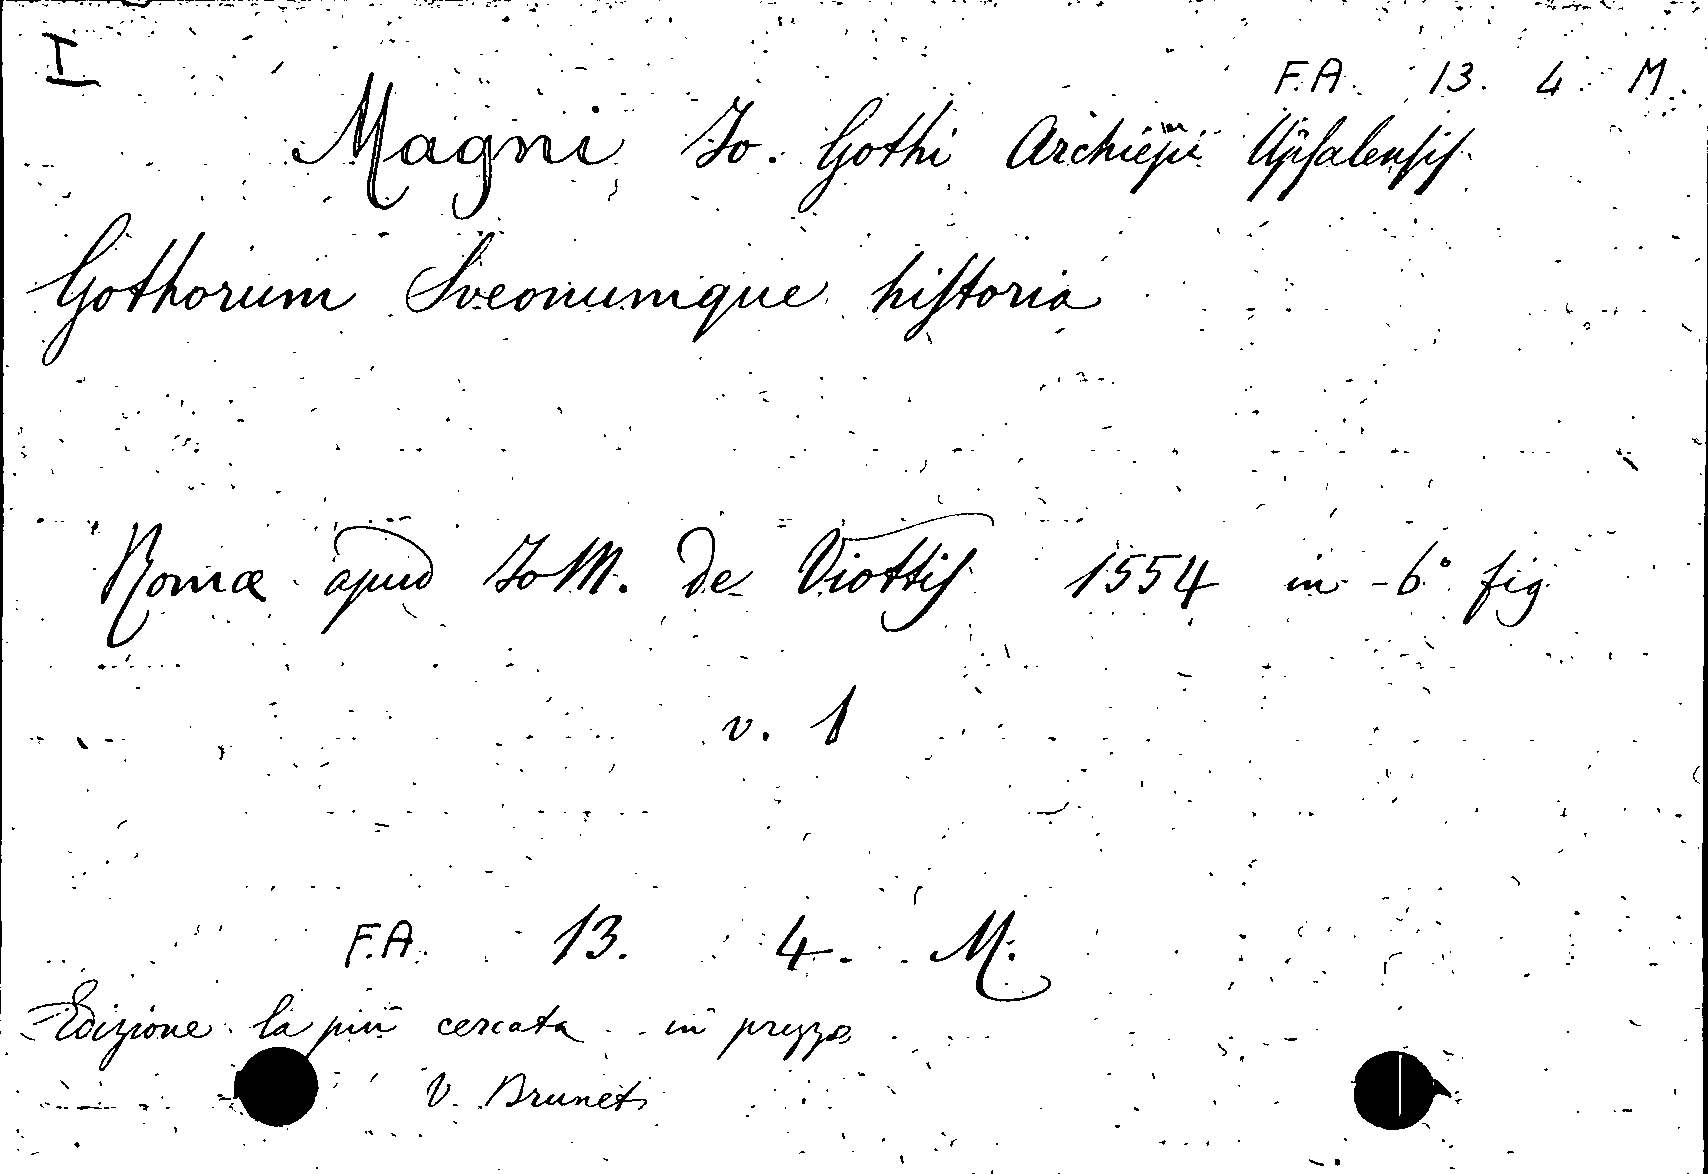 I
F.A. 13. 4. M.
Magni Jo. Gothi Archiepi Upsalensis
Gothorum Sveonumque historia
Romæ apud Jo M. de Viottis 1554 in-6° fig
v. 1
F.A. 13. 4. M.
Edizione la più cercata in prezzo
V. Brunet